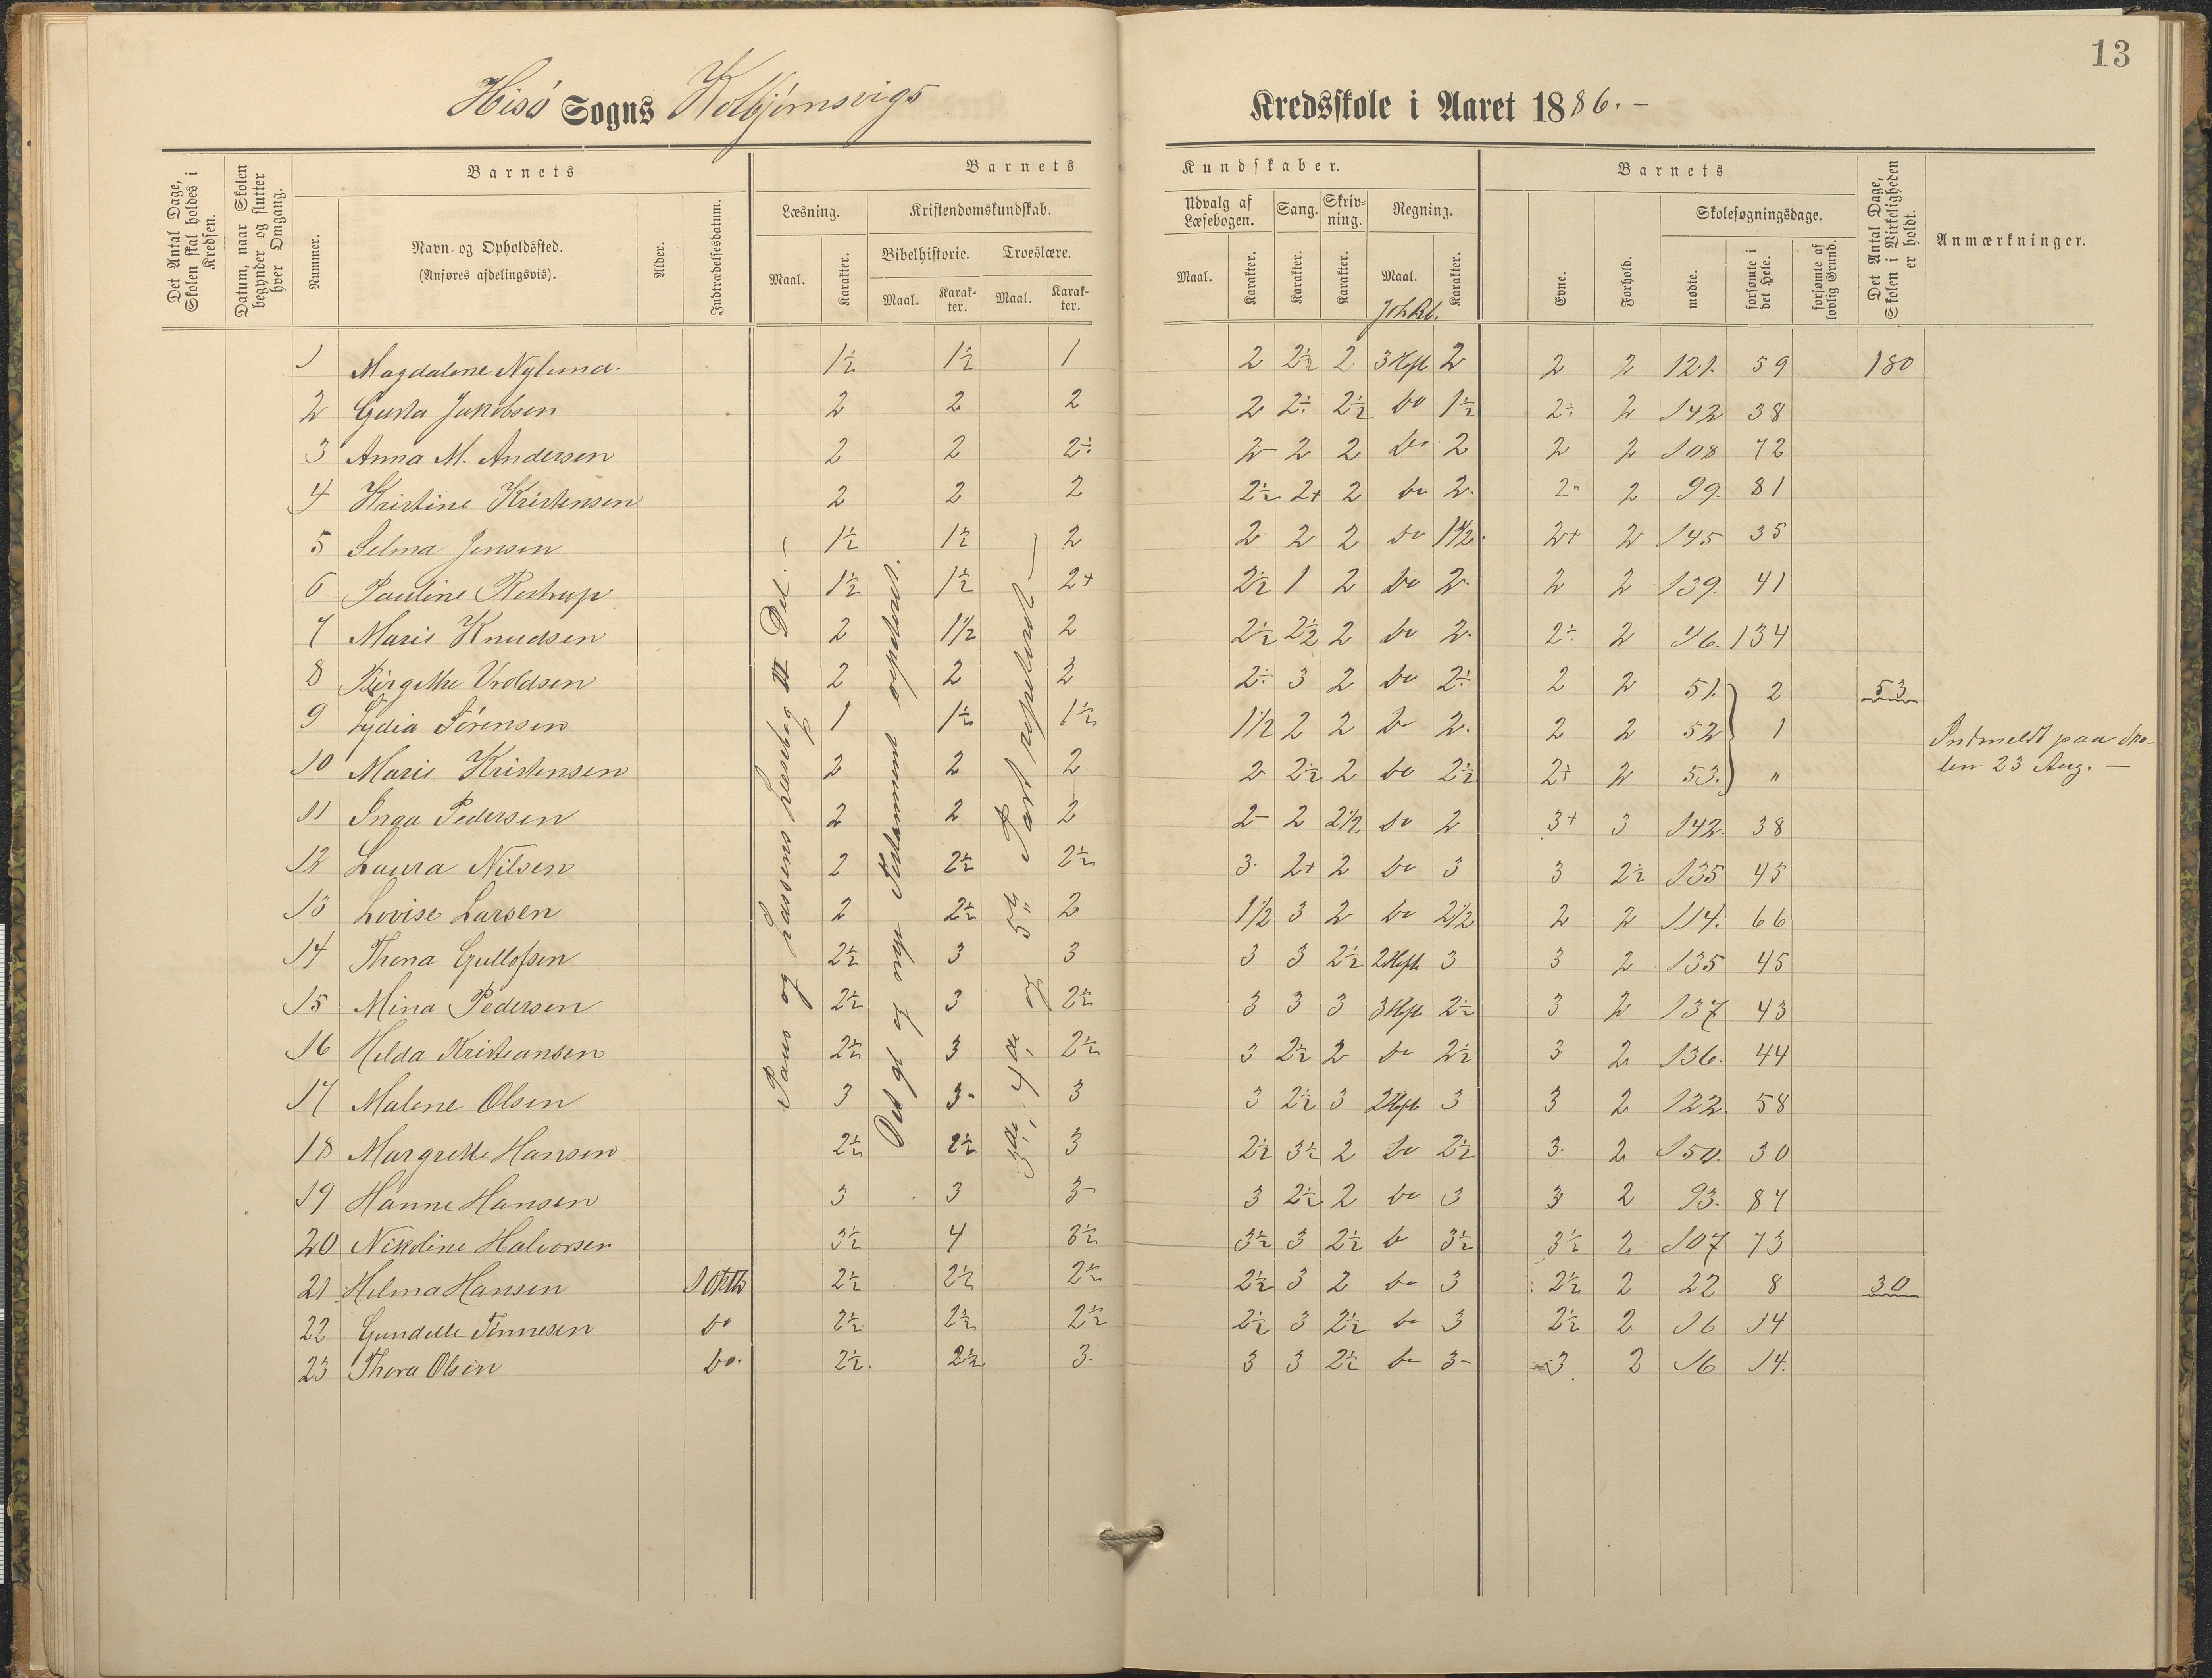 13
Hisö Sogns Kolbjörnsvigs Kredsskole i Aaret 1886.-
Det Antal Dage, Skolen skal holdes i Kredsen.
Datum, naar Skolen begynder og slutter hver Omgang.
Barnets
Nummer.
Navn og Opholdssted.
(Anføres afdelingsvis).
Alder.
Indtrædelsesdatum.
Barnets Kundskaber.
Læsning.
Maal.
Karakter.
Kristendomskundskab.
Bibelhistorie.
Maal.
Karakter.
Troeslære.
Maal.
Karakter.
Udvalg af Læsebogen.
Maal.
Karakter.
Sang.
Karakter.
Skrivning.
Karakter.
Regning.
Maal.
Karakter.
Barnets
Evne.
Forhold.
Skolesøgningsdage.
mødte.
forsømte i det Hele.
forsømte af lovlig Grund.
Det Antal Dage, Skolen i Virkeligheden er holdt.
Anmærkninger.
1 Magdalene Nylund. 1½ 1½ 1 2 2½ 2 3 Heft 2 2 2 121. 59 180
2 Gusta Jakobsen 2 2 2 2 2÷ 2½ do 1½ 2÷ 2 142 38
3 Anna M. Andersen 2 2 2÷ 2- 2 2 do 2 2 2 108 72
4 Kristine Kristensen 2 2 2 2½ 2+ 2 do 2- 2- 2 99. 81
5 Selma Jensen 1½ 1½ 2 2 2 2 do 1½ 2+ 2 145 35
6 Pauline Rostrup 1½ 1½ 2+ 2½ 1 2 do 2- 2 2 139. 41
7 Marie Knudsen 2 1½ 2 2½ 2½ 2 do 2- 2÷ 2 46. 134
8 Birgitthe Uroldsen 2 2 2 2÷ 3 2 do 2÷ 2 2 51. 2 53
9 Lydia Sörensen 1 1½ 1½ 1½ 2 2 do 2. 2 2 52 1
10 Marie Kristensen 2 2 2 2 2½ 2 do 2½ 2+ 2 53. "
Indmeldt paa Skolen 23 Aug. —
11 Inga Pedersen 2 2 2 2- 2 2½ do 2 3+ 3 142. 38
12 Laura Nilsen 2 2½ 2½ 3. 2+ 2 do 3 3 2½ 135 45
13 Lovise Larsen 2 2½ 2 1½ 3 2 do 2½ 2 2 114. 66
14 Thena Gullofsen 2½ 3 3 3 3 2½ 2 Heft 3 3 2 135 45
15 Mina Pedersen 2½ 3 2½ 3 3 3 3 Heft 2½ 3 2 137 43
16 Helda Kristeansen 2½ 3 2½ 3 2½ 2 do 2½ 3 2 136. 44
17 Malene Olsen 3 3- 3 3 2½ 3 2 Heft 3 3 2 122. 58
18 Margrethe Hansen 2½ 2½ 3 2½ 3½ 2 do 2½ 3. 2 150. 30
19 Hanne Hansen 3 3 3- 3 2½ 2 do 3 3 2 93. 87
20 Nikoline Halvorsen 3½ 4 3½ 3½ 3 2½ do 3½ 3½ 2 107 73
21 Helma Hansen 1 Okth 2½ 2½ 2½ 2½ 3 2 do 3 2½ 2 22 8 30
22 Gundelle Tönnesen do 2½ 2½ 2½ 2½ 3 2½ do 3 2½ 2 16 14
23 Thora Olsen do. 2½. 2½ 3. 3 3 2½ do 3- 3 2 16 14.
Paus og Lassens Læsebog II Del. —
Det gl og nye Testamment repeteret.
3die, 4de og 5te Part repeteret —